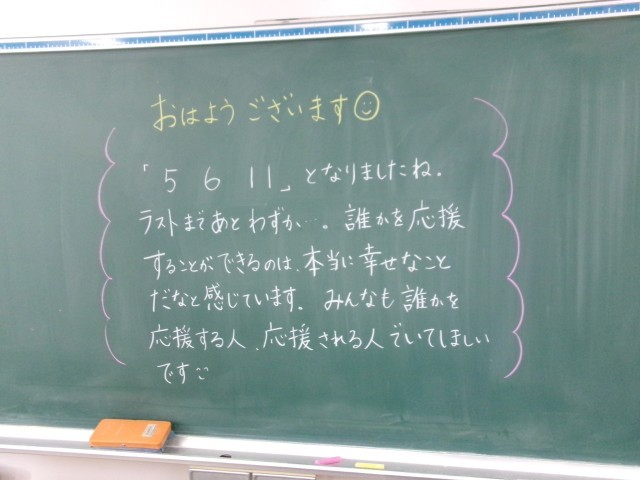 おはようございます☺
「5 6 11」となりましたね。
ラストまであとわずか…。誰かを応援
することができるのは、本当に幸せなこと
だなと感じています。みんなも誰かを
応援する人、応援される人でいてほしい
です